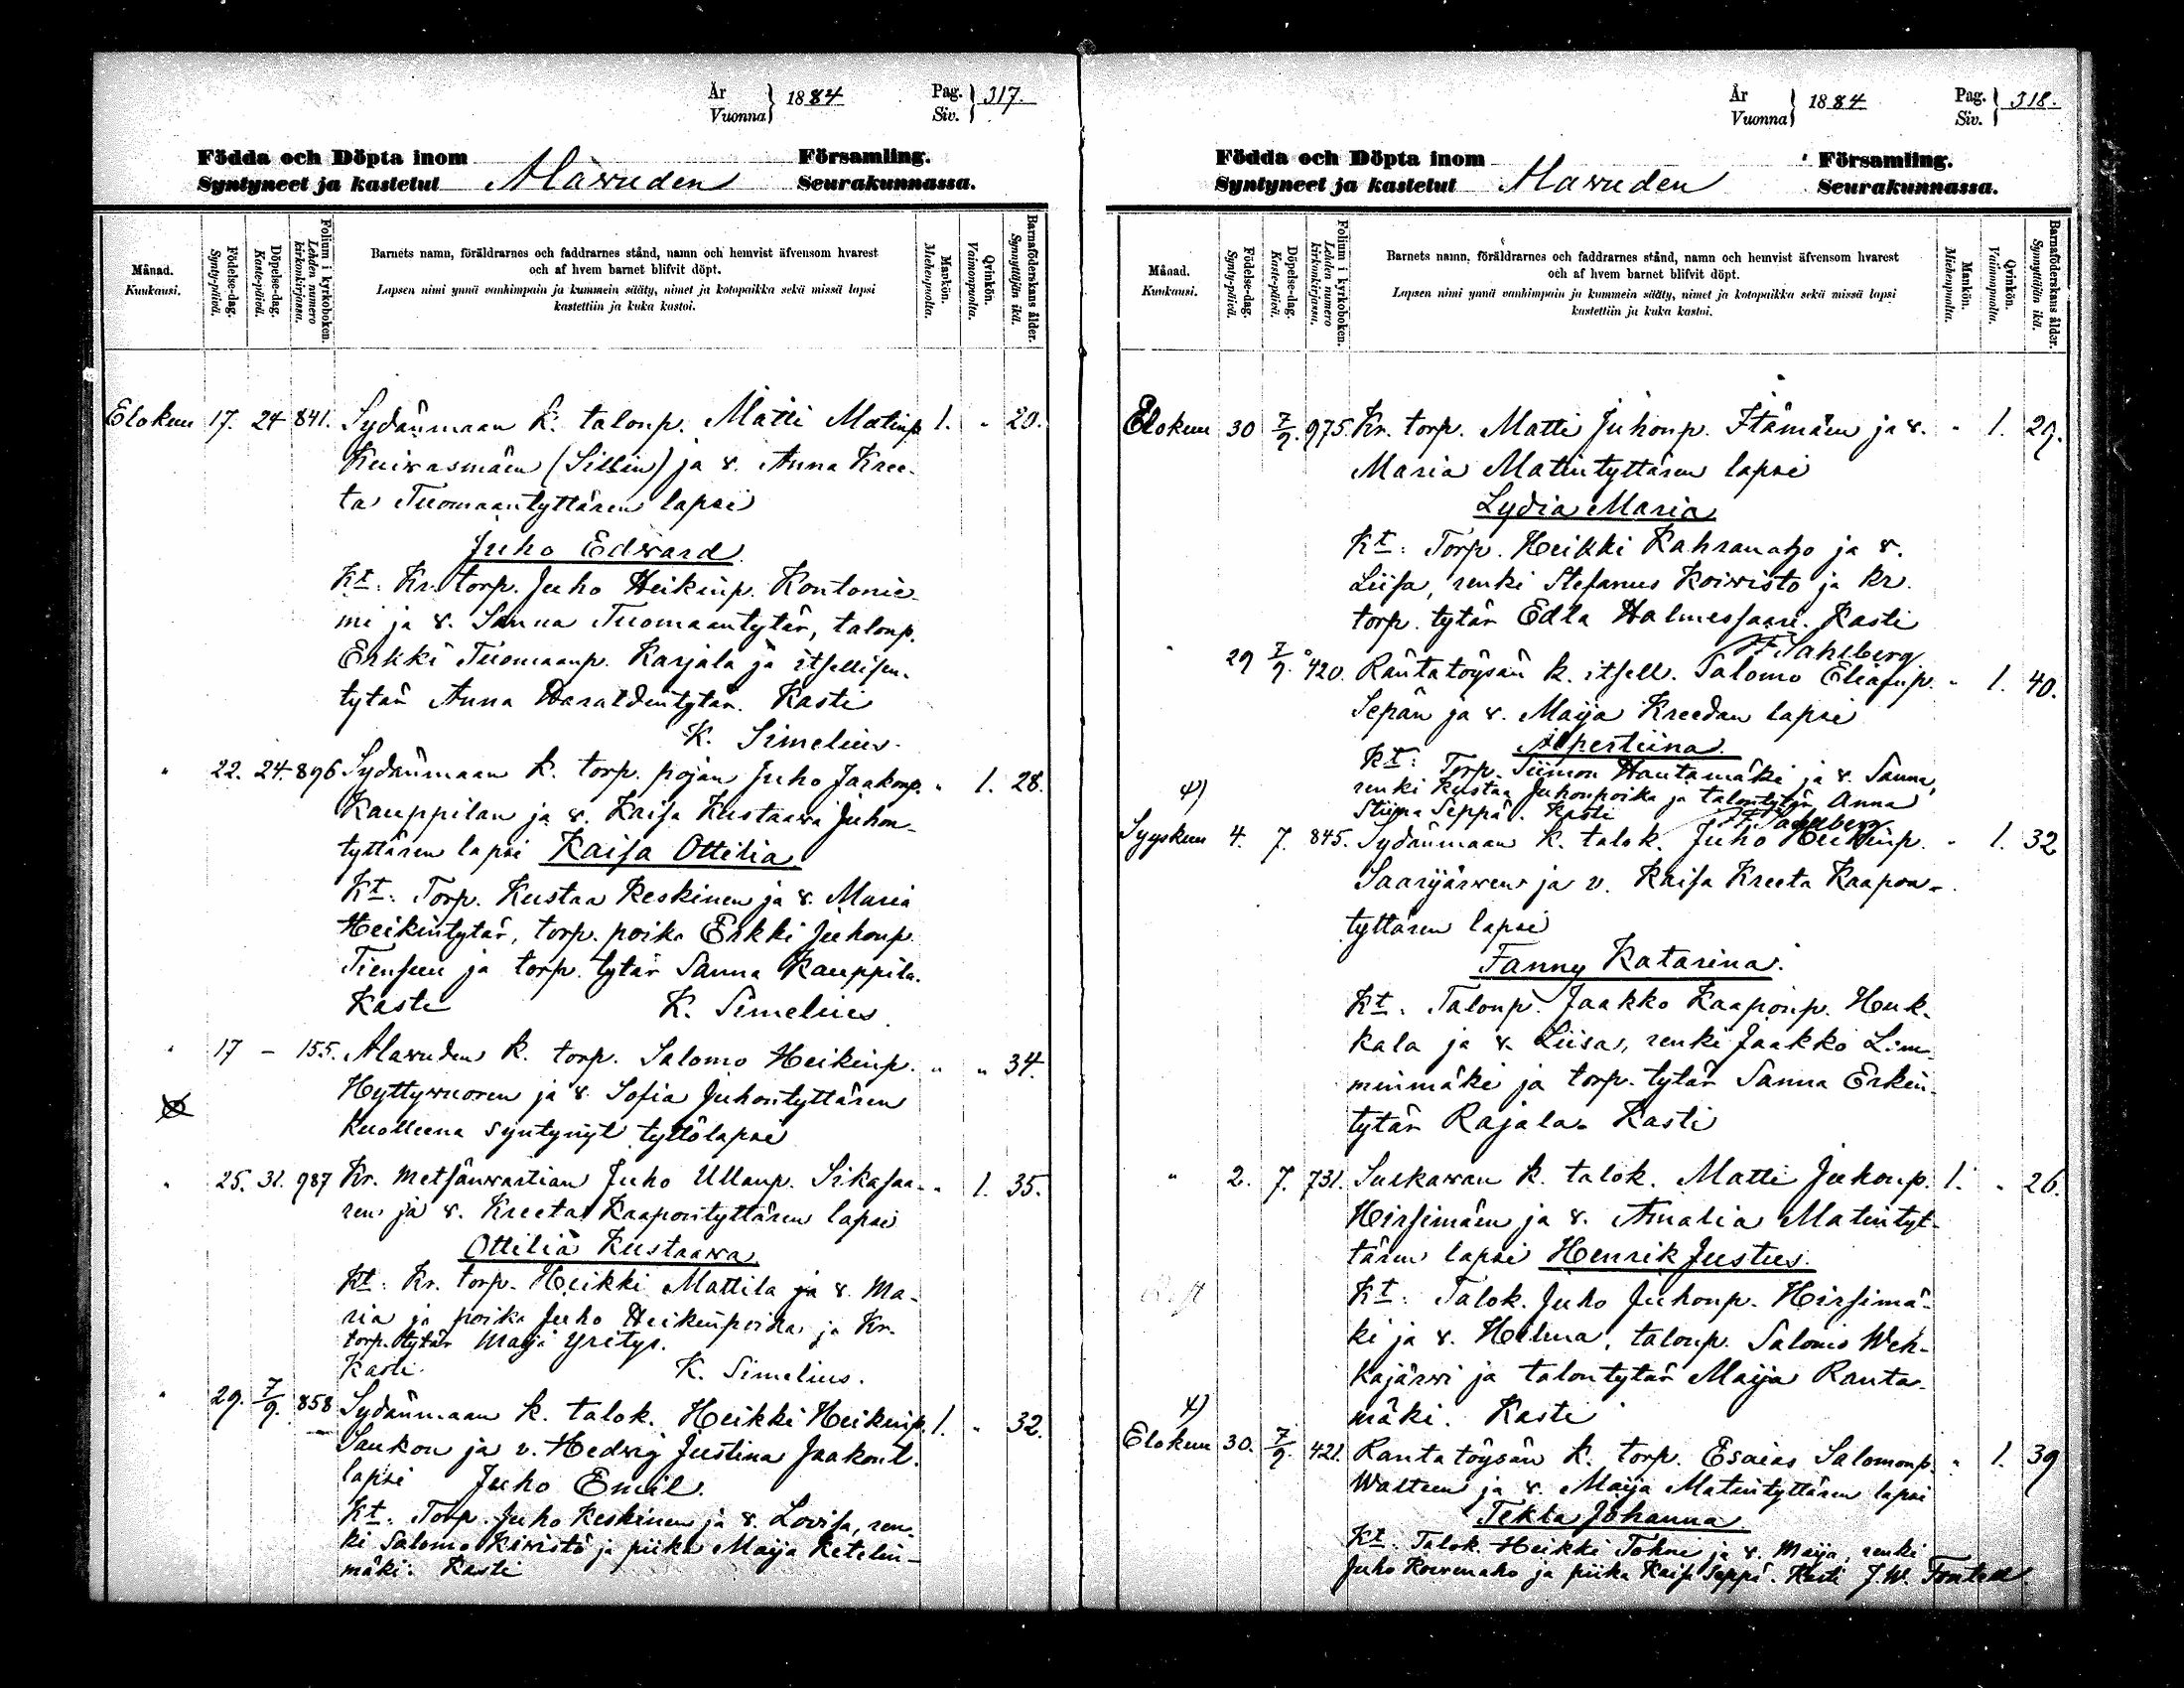 År
Vuonna } 1884
Pag.
Siv. } 317.
Födda och Döpta inom Församling.
Syntyneet ja kastetut Alawuden Seurakunnassa.
Månad.
Kuukausi.
Födelse-dag.
Synty-päivä.
Döpelse-dag.
Kaste-päivä.
Folium i kyrkoboken.
Lehden numero
kirkonkirjassa.
Barnets namn, föräldrarnes och faddrarnes stånd, namn och hemvist äfvensom hvarest
och af hvem barnet blifvit döpt.
Lapsen nimi ynnä vanhimpain ja kummein sääty, nimet ja kotopaikka sekä missä lapsi
kastettiin ja kuka kastoi.
Mankön.
Miehenpuolta.
Qvinkön.
Vaimonpuolta.
Barnaföderskans ålder.
Synnyttäjän ikä.
Elokuu 17. 24 841. Sydänmaan k. talonp. Matti Matinp. 1. " 20.
Kuiwasmäen (Sillin) ja v. Anna Kree-
ta Tuomaantyttären lapsi
Juho Edward.
Kt: Kr. torp. Juho Heikinp. Kontonie-
mi ja v. Sanna Tuomaantytär, talonp.
Erkki Tuomaanp. Karjala ja itsellisen-
tytär Anna Haraldintytär. Kasti
K. Simelius.
" 22. 24. 896 Sydänmaan k. torp. pojan Juho Jaakonp. " 1. 28.
Kauppilan ja v. Kaisa Kustaawa Juhon-
tyttären lapsi Kaisa Ottilia.
Kt: Torp. Kustaa Keskinen ja v. Maria
Heikintytär, torp. poika Erkki Juhonp.
Tiensuu ja torp. tytär Sanna Kauppila.
Kaste K. Simelius.
" 17 – 155. Alawuden k. torp. Salomo Heikinp. " " 34.
Hyttywuoren ja v. Sofia Juhontyttären
Kuolleena syntynyt tyttölapsi
" 25. 31. 987 Kr. metsänwartian Juho Ullanp. Sikasaa- " 1. 35.
ren ja v. Kreeta Kaapontyttären lapsi
Ottilia Kustaawa.
Kt: Kr. torp. Heikki Mattila ja v. Ma-
ria ja poika Juho Heikinpoika ja Kr.
torp. tytär Maija Yritys.
Kaste. K. Simelius.
" 29. 7/9. 858 Sydänmaan k. talok. Heikki Heikinp. 1. " 32.
Saukon ja v. Hedwig Justina Jaakont.
lapsi Juho Emil.
Kt: Torp. Juho Keskinen ja v. Lovisa, ren-
ki Salomo Kiwistö ja piika Maija Ketelin-
mäki. Kasti
År
Vuonna } 1884
Pag.
Siv. } 318.
Födda och Döpta inom Församling.
Syntyneet ja kastetut Alawuden Seurakunnassa.
Månad.
Kuukausi.
Födelse-dag.
Synty-päivä.
Döpelse-dag.
Kaste-päivä.
Folium i kyrkoboken.
Lehden numero
kirkonkirjassa.
Barnets namn, föräldrarnes och faddrarnes stånd, namn och hemvist äfvensom hvarest
och af hvem barnet blifvit döpt.
Lapsen nimi ynnä vanhimpain ja kummein sääty, nimet ja kotopaikka sekä missä lapsi
kastettiin ja kuka kastoi.
Mankön.
Miehenpuolta.
Qvinkön.
Vaimonpuolta.
Barnaföderskans ålder.
Synnyttäjän ikä.
Elokuu 30 7/9. 975. Kr. torp. Matti Juhonp. Itämäen ja v. " 1. 29.
Maria Matintyttären lapsi
Lydia Maria
Kt: Torp. Heikki Kahranaho ja v.
Liisa, renki Stefanus Koiwisto ja kr.
torp. tytär Edla Halmessaari. Kasti
F. Sahlberg
" 29 7/9. 420. Rantatöysän k. itsell. Salomo Eliaanp. " 1. 40.
Sepän ja v. Maija Kreedan lapsi
Alpertiina.
Kt: Torp. Siimon Hautamäki ja v. Sanna,
renki Kustaa Juhonpoika ja talontytär Anna
Stiina Seppä. Kasti
F. Sahlberg
4)
Syyskuu 4. 7. 845. Sydänmaan k. talok. Juho Heikinp. " 1. 32
Saarijärwen ja v. Kaisa Kreeta Kaapon-
tyttären lapsi
Fanny Katarina.
Kt: Talonp. Jaakko Kaaponp. Heik-
kala ja v. Liisa, renki Jaakko Lim-
minmäki ja torp. tytär Sanna Erkin-
tytär Rajala. Kasti
" 2. 7. 731. Sulkawan k. talok. Matti Juhonp. 1. " 26.
Hirsimäen ja v. Amalia Matintyt-
tären lapsi Henrik Justus.
Kt: Talok. Juho Juhonp. Hirsimä-
ki ja v. Helena, talonp. Salomo Weh-
kajärwi ja talontytär Maija Ranta-
mäki. Kasti
4)
Elokuu 30. 7/9. 421. Rantatöysän k. torp. Esaias Salomonp. " 1. 39
Walteen ja v. Maija Matintyttären lapsi
Tekla Johanna.
Kt: Talok. Heikki Tohni ja v. Maija, renki
Juho Koiwumaho ja piika Kaisa Seppä. Kasti J. W.